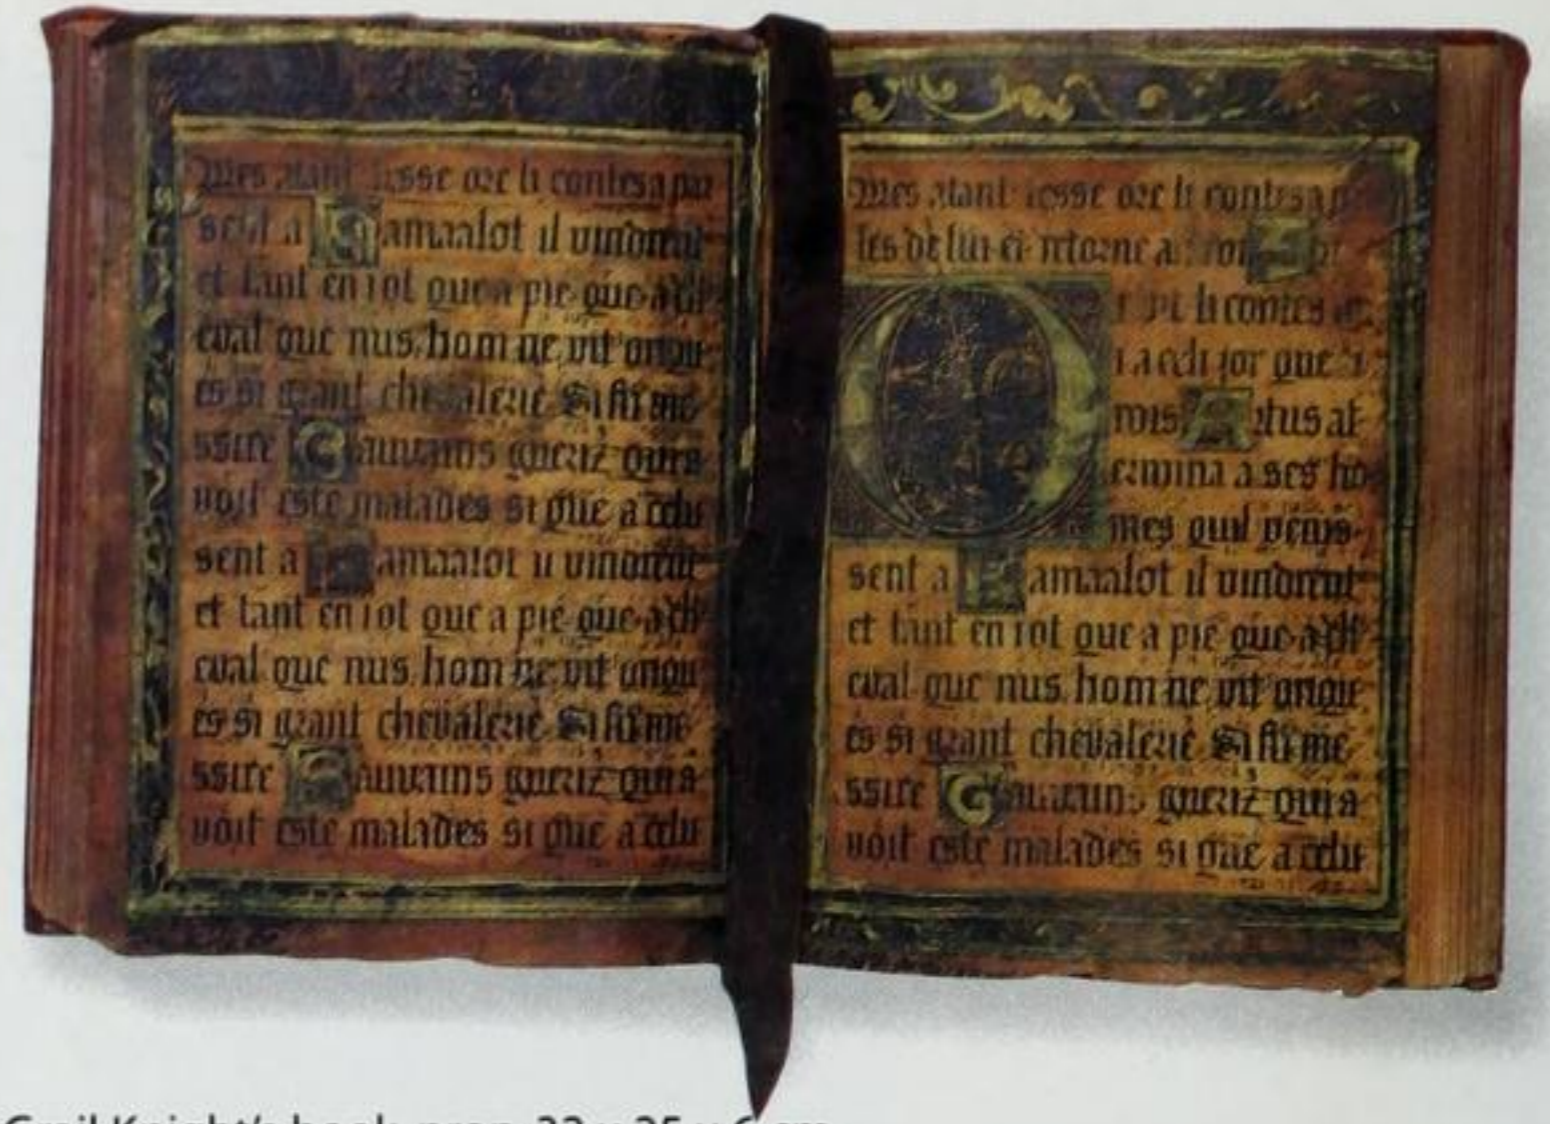 Mes atant lesse ore li contes a par
sent a Kamaalot il vindrent
et tant en i ot que a pie que a ch
eval que nus hom ne vit onqu
es si grant chevalerie Si fu me
ssire Gauveins gueriz qui a
voit este malades si que a celu
sent a Kamaalot il vindrent
et tant en i ot que a pie que a ch
eval que nus hom ne vit onqu
es si grant chevalerie Si fu me
ssire Gauveins gueriz qui a
voit este malades si que a celu
Mes atant lesse ore li contes a p
les de lui et retorne a
li contes
a celi jor que
rois Artus at
ermina a ses ho
mes quil venis
sent a Kamaalot il vindrent
et tant en i ot que a pie que a ch
eval que nus hom ne vit onque
es si grant chevalerie Si fu me
ssire Gauveins gueriz qui a
voit este malades si que a celu
Grail Knight's book prop, 33 x 25 x 6 cm